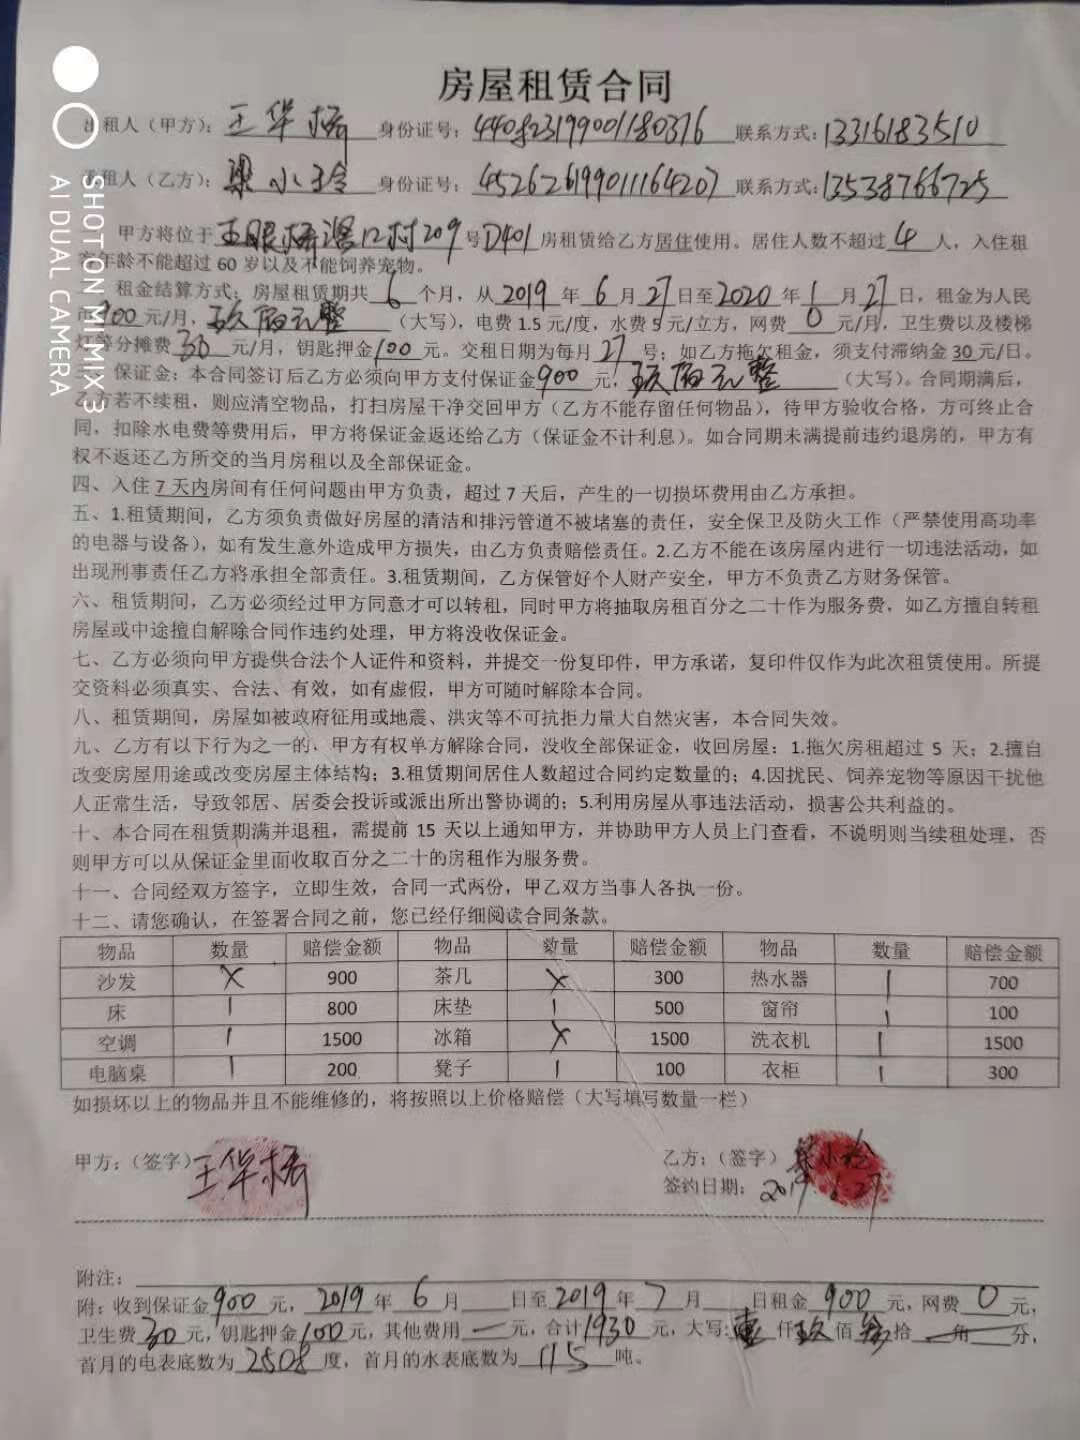 房屋租赁合同
出租人（甲方）：王华梧 身份证号：440823199001180376 联系方式：13316183510
承租人（乙方）：梁小玲 身份证号：452626199011164207 联系方式：13538766725
甲方将位于 村209号D401房租赁给乙方居住使用。居住人数不超过4人，入住租
客年龄不能超过60岁以及不能饲养宠物。
二、租金结算方式：房屋租赁期共6个月，从2019年6月27日至2020年1月27日，租金为人民
币900元/月，玖佰元整（大写），电费1.5元/度，水费5元/立方，网费0元/月，卫生费以及楼梯
灯等分摊费30元/月，钥匙押金100元。交租日期为每月27号；如乙方拖欠租金，须支付滞纳金30元/日。
三、保证金：本合同签订后乙方必须向甲方支付保证金900元，玖佰元整（大写）。合同期满后，
乙方若不续租，则应清空物品，打扫房屋干净交回甲方（乙方不能存留任何物品），待甲方验收合格，方可终止合
同，扣除水电费等费用后，甲方将保证金返还给乙方（保证金不计利息）。如合同期未满提前违约退房的，甲方有
权不返还乙方所交的当月房租以及全部保证金。
四、入住7天内房间有任何问题由甲方负责，超过7天后，产生的一切损坏费用由乙方承担。
五、1.租赁期间，乙方须负责做好房屋的清洁和排污管道不被堵塞的责任，安全保卫及防火工作（严禁使用高功率
的电器与设备），如有发生意外造成甲方损失，由乙方负责赔偿责任。2.乙方不能在该房屋内进行一切违法活动，如
出现刑事责任乙方将承担全部责任。3.租赁期间，乙方保管好个人财产安全，甲方不负责乙方财务保管。
六、租赁期间，乙方必须经过甲方同意才可以转租，同时甲方将抽取房租百分之二十作为服务费，如乙方擅自转租
房屋或中途擅自解除合同作违约处理，甲方将没收保证金。
七、乙方必须向甲方提供合法个人证件和资料，并提交一份复印件，甲方承诺，复印件仅作为此次租赁使用。所提
交资料必须真实、合法、有效，如有虚假，甲方可随时解除本合同。
八、租赁期间，房屋如被政府征用或地震、洪灾等不可抗拒力量大自然灾害，本合同失效。
九、乙方有以下行为之一的，甲方有权单方解除合同，没收全部保证金，收回房屋：1.拖欠房租超过5天；2.擅自
改变房屋用途或改变房屋主体结构；3.租赁期间居住人数超过合同约定数量的；4.因扰民、饲养宠物等原因干扰他
人正常生活，导致邻居、居委会投诉或派出所出警协调的；5.利用房屋从事违法活动，损害公共利益的。
十、本合同在租赁期满并退租，需提前15天以上通知甲方，并协助甲方人员上门查看，不说明则当续租处理，否
则甲方可以从保证金里面收取百分之二十的房租作为服务费。
十一、合同经双方签字，立即生效，合同一式两份，甲乙双方当事人各执一份。
十二、请您确认，在签署合同之前，您已经仔细阅读合同条款。
物品 数量 赔偿金额 物品 数量 赔偿金额 物品 数量 赔偿金额
沙发 X 900 茶几 X 300 热水器 1 700
床 1 800 床垫 1 500 窗帘 1 100
空调 1 1500 冰箱 X 1500 洗衣机 1 1500
电脑桌 1 200 凳子 1 100 衣柜 1 300
如损坏以上的物品并且不能维修的，将按照以上价格赔偿（大写填写数量一栏）
甲方：（签字）王华梧 乙方：（签字）梁小玲
签约日期：2019.6.27
附注：
附：收到保证金900元，2019年6月 日至2019年7月 日租金900元，网费0元，
卫生费30元，钥匙押金100元，其他费用一元，合计1930元，大写：壹仟玖佰叁拾 角 分，
首月的电表底数为2508度，首月的水表底数为115吨。
SHOT ON MI MIX 3
AI DUAL CAMERA